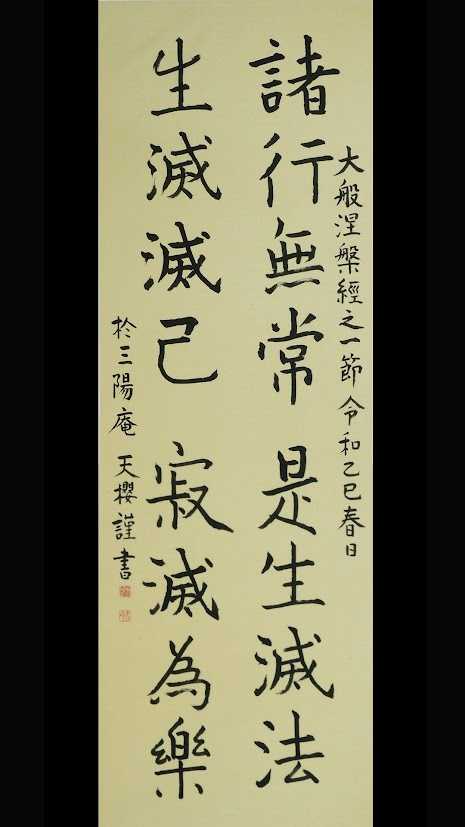 大般涅槃經之一節 令和乙巳春日
諸行無常是生滅法
生滅滅已寂滅為樂
於三陽庵 天櫻謹書